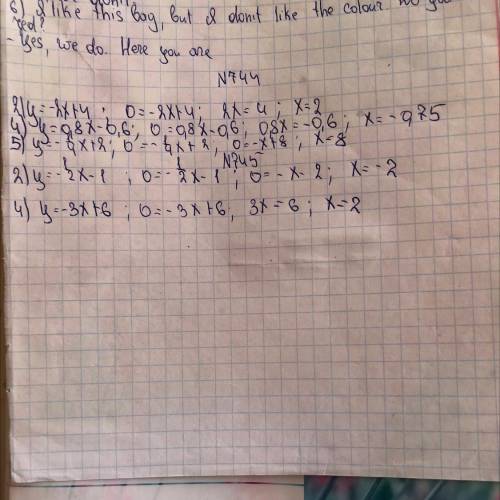 6) I like this bag, but I don't like the colour.
red?
- Yes, we do. Here you are
N744
2) y=-2x+4; 0=-2x+4; 2x=4; x=2
4) y=0,8x-0,6; 0=0,8x-0,6; 0,8x=-0,6; x=-0,75
5) y=-1/4x+2; 0=-1/4x+2; 0=-x+8; x=8
N745
2) y=-1/2x-1; 0=-1/2x-1; 0=-x-2; x=-2
4) y=-3x+6; 0=-3x+6, 3x=6; x=2